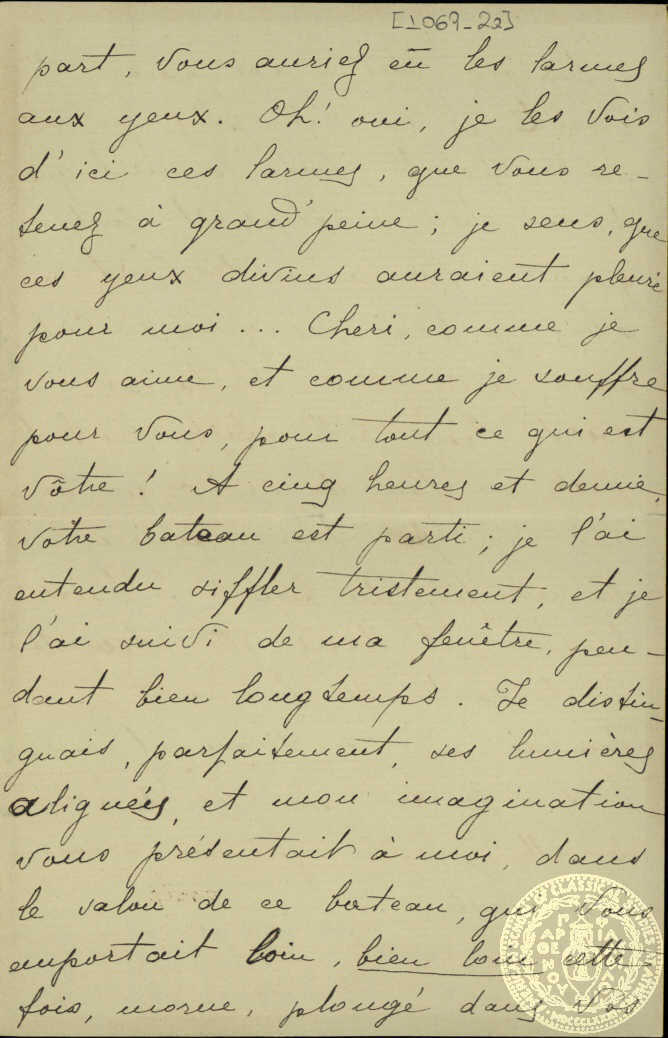 [1069-22]
part, vous auriez eu les larmes
aux yeux. Oh! oui, je les vois
d'ici ces larmes, que vous re-
tenez à grand'peine; je sens, que
ces yeux divins auraient pleuré
pour moi... Cheri, comme je
vous aime, et comme je souffre
pour vous, pour tout ce qui est
vôtre! A cinq heures et demie,
votre bateau est parti; je l'ai
entendu siffler tristement, et je
l'ai suivi de ma fenêtre, pen-
dant bien longtemps. Je distin-
guais, parfaitement, ses lumières
alignées, et mon imagination
vous présentait à moi, dans
le salon de ce bateau, qui vous
emportait loin, bien loin cette
fois, morne, plongé dans vos